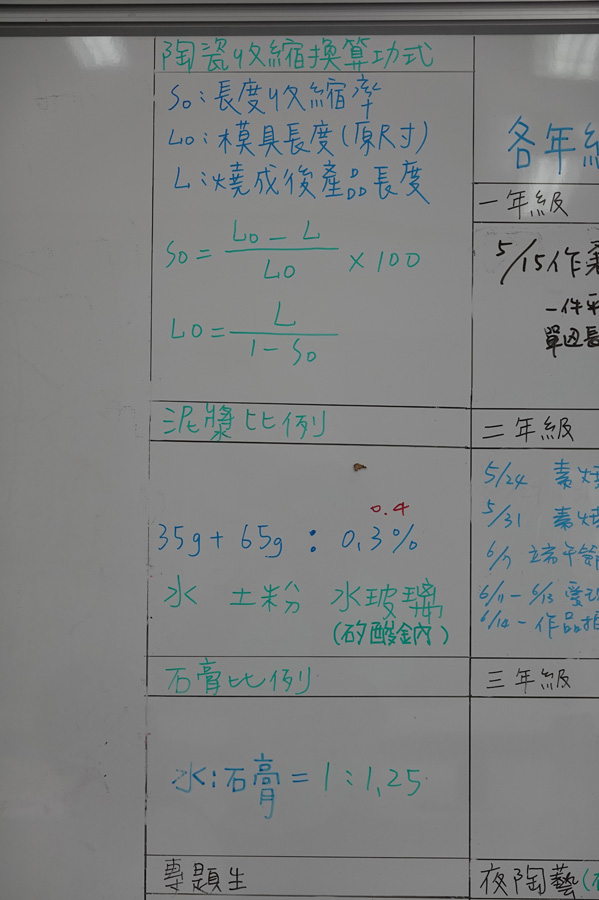 陶瓷收縮換算功式
So:長度收縮率
Lo:模具長度(原尺寸)
L:燒成後產品長度
So = Lo - L / Lo × 100
Lo = L / 1 - So
泥漿比例
0.4
35g + 65g : 0.3%
水 土粉 水玻璃
(矽酸鈉)
石膏比例
水:石膏 = 1:1.25
專題生
各年級
一年級
5/15作
一件
單邊長
二年級
5/24 素燒
5/31 素燒
6/7 端午節
6/11-6/13
6/14-作品
三年級
夜陶藝